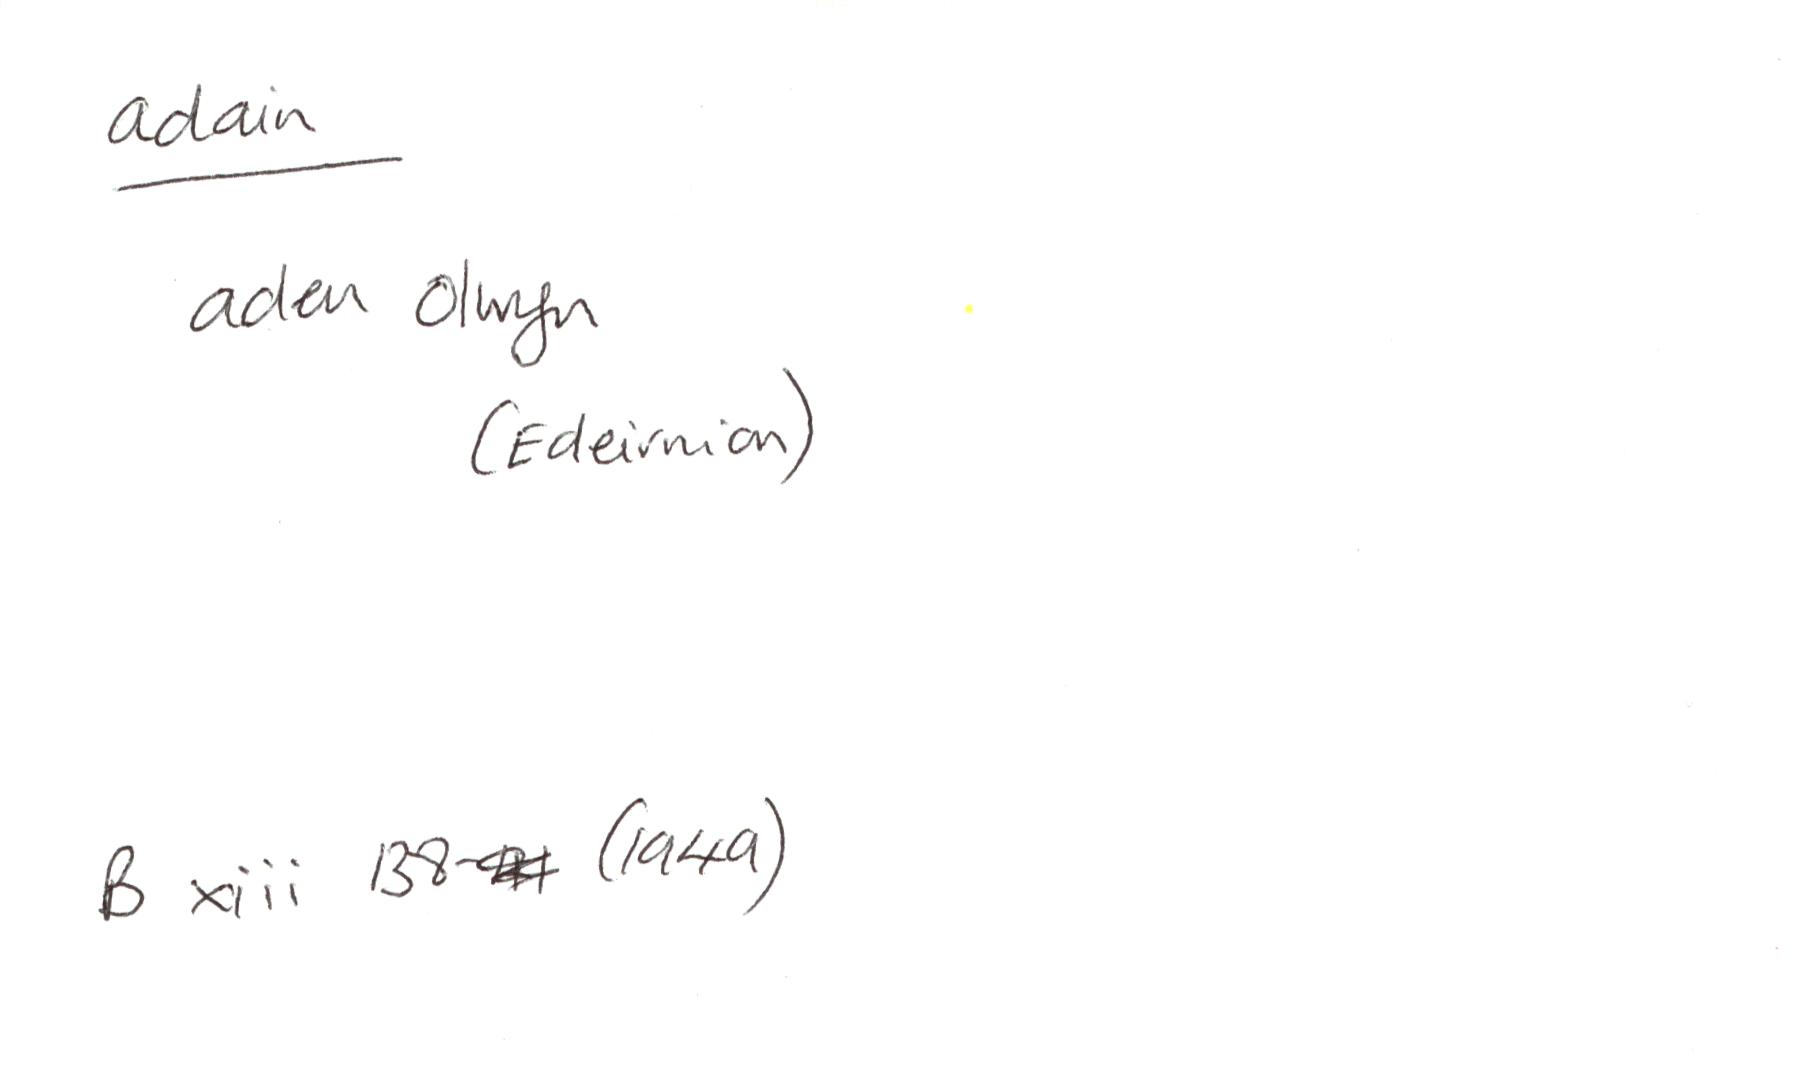 adain
aden olwyn
(Edeirnion)
B xiii 138 (1949)